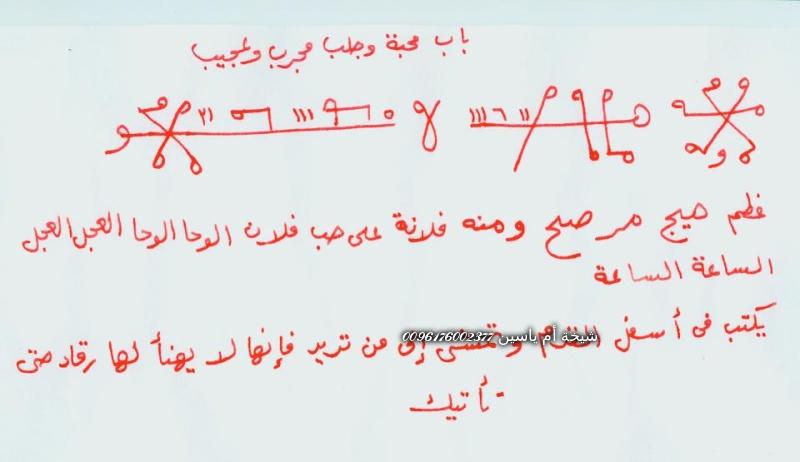 باب محبة وجلب مجرب وعجيب
هيج مر صح ومنه فلانة على حب فلان الوحا الوحا العجل العجل
الساعة الساعة
يكتب فى أسفل القدم وتمشى إلى من تريد فإنها لا يهنأ لها رقاد حتى
تأتيك
شيخة أم ياسين 0096176002377